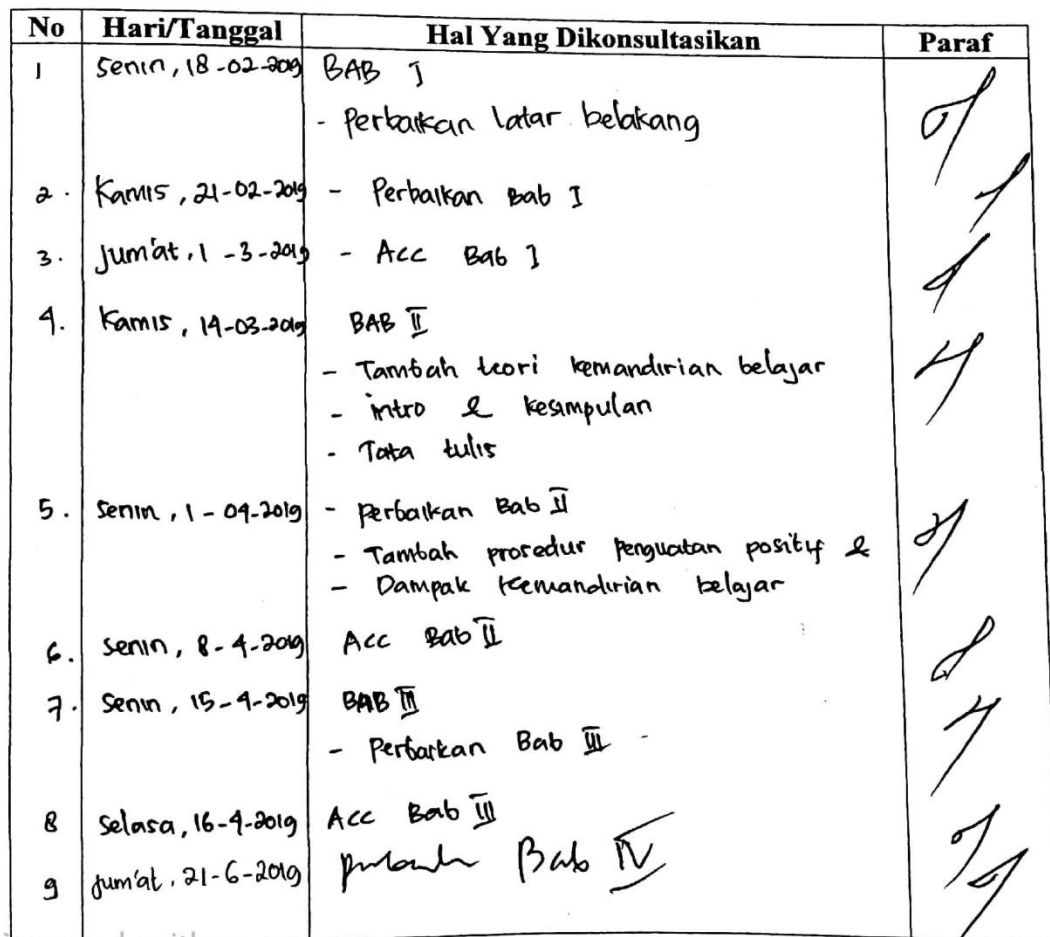 No Hari/Tanggal Hal Yang Dikonsultasikan Paraf
1 Senin, 18-02-2019 BAB I
- Perbaikan latar belakang
2. Kamis, 21-02-2019 - Perbaikan Bab I
3. Jum'at, 1-3-2019 - Acc Bab I
4. Kamis, 14-03-2019 BAB II
- Tambah teori kemandirian belajar
- intro & kesimpulan
- Tata tulis
5. Senin, 1-04-2019 - perbaikan Bab II
- Tambah prosedur penguatan positif &
- Dampak kemandirian belajar
6. Senin, 8-4-2019 Acc Bab II
7. Senin, 15-4-2019 BAB III
- Perbaikan Bab III -
8 Selasa, 16-4-2019 Acc Bab III
9 Jum'at, 21-6-2019 Bab IV